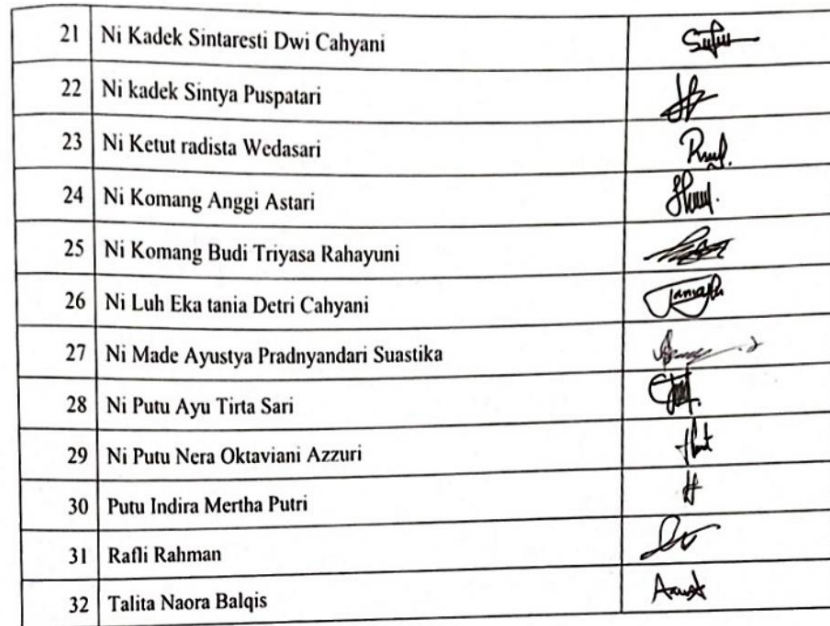 21 Ni Kadek Sintaresti Dwi Cahyani
22 Ni kadek Sintya Puspatari
23 Ni Ketut radista Wedasari
24 Ni Komang Anggi Astari
25 Ni Komang Budi Triyasa Rahayuni
26 Ni Luh Eka tania Detri Cahyani
27 Ni Made Ayustya Pradnyandari Suastika
28 Ni Putu Ayu Tirta Sari
29 Ni Putu Nera Oktaviani Azzuri
30 Putu Indira Mertha Putri
31 Rafli Rahman
32 Talita Naora Balqis